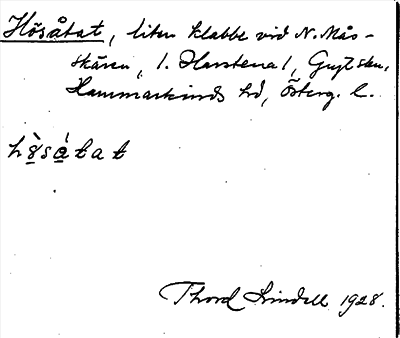 Hösåtat, liten klabbe vid N. Mås-
skären, /. Harstena/, Gryt skn,
Hammarkinds hd, Österg. l.
hòsátat
Thord Lindell 1928.